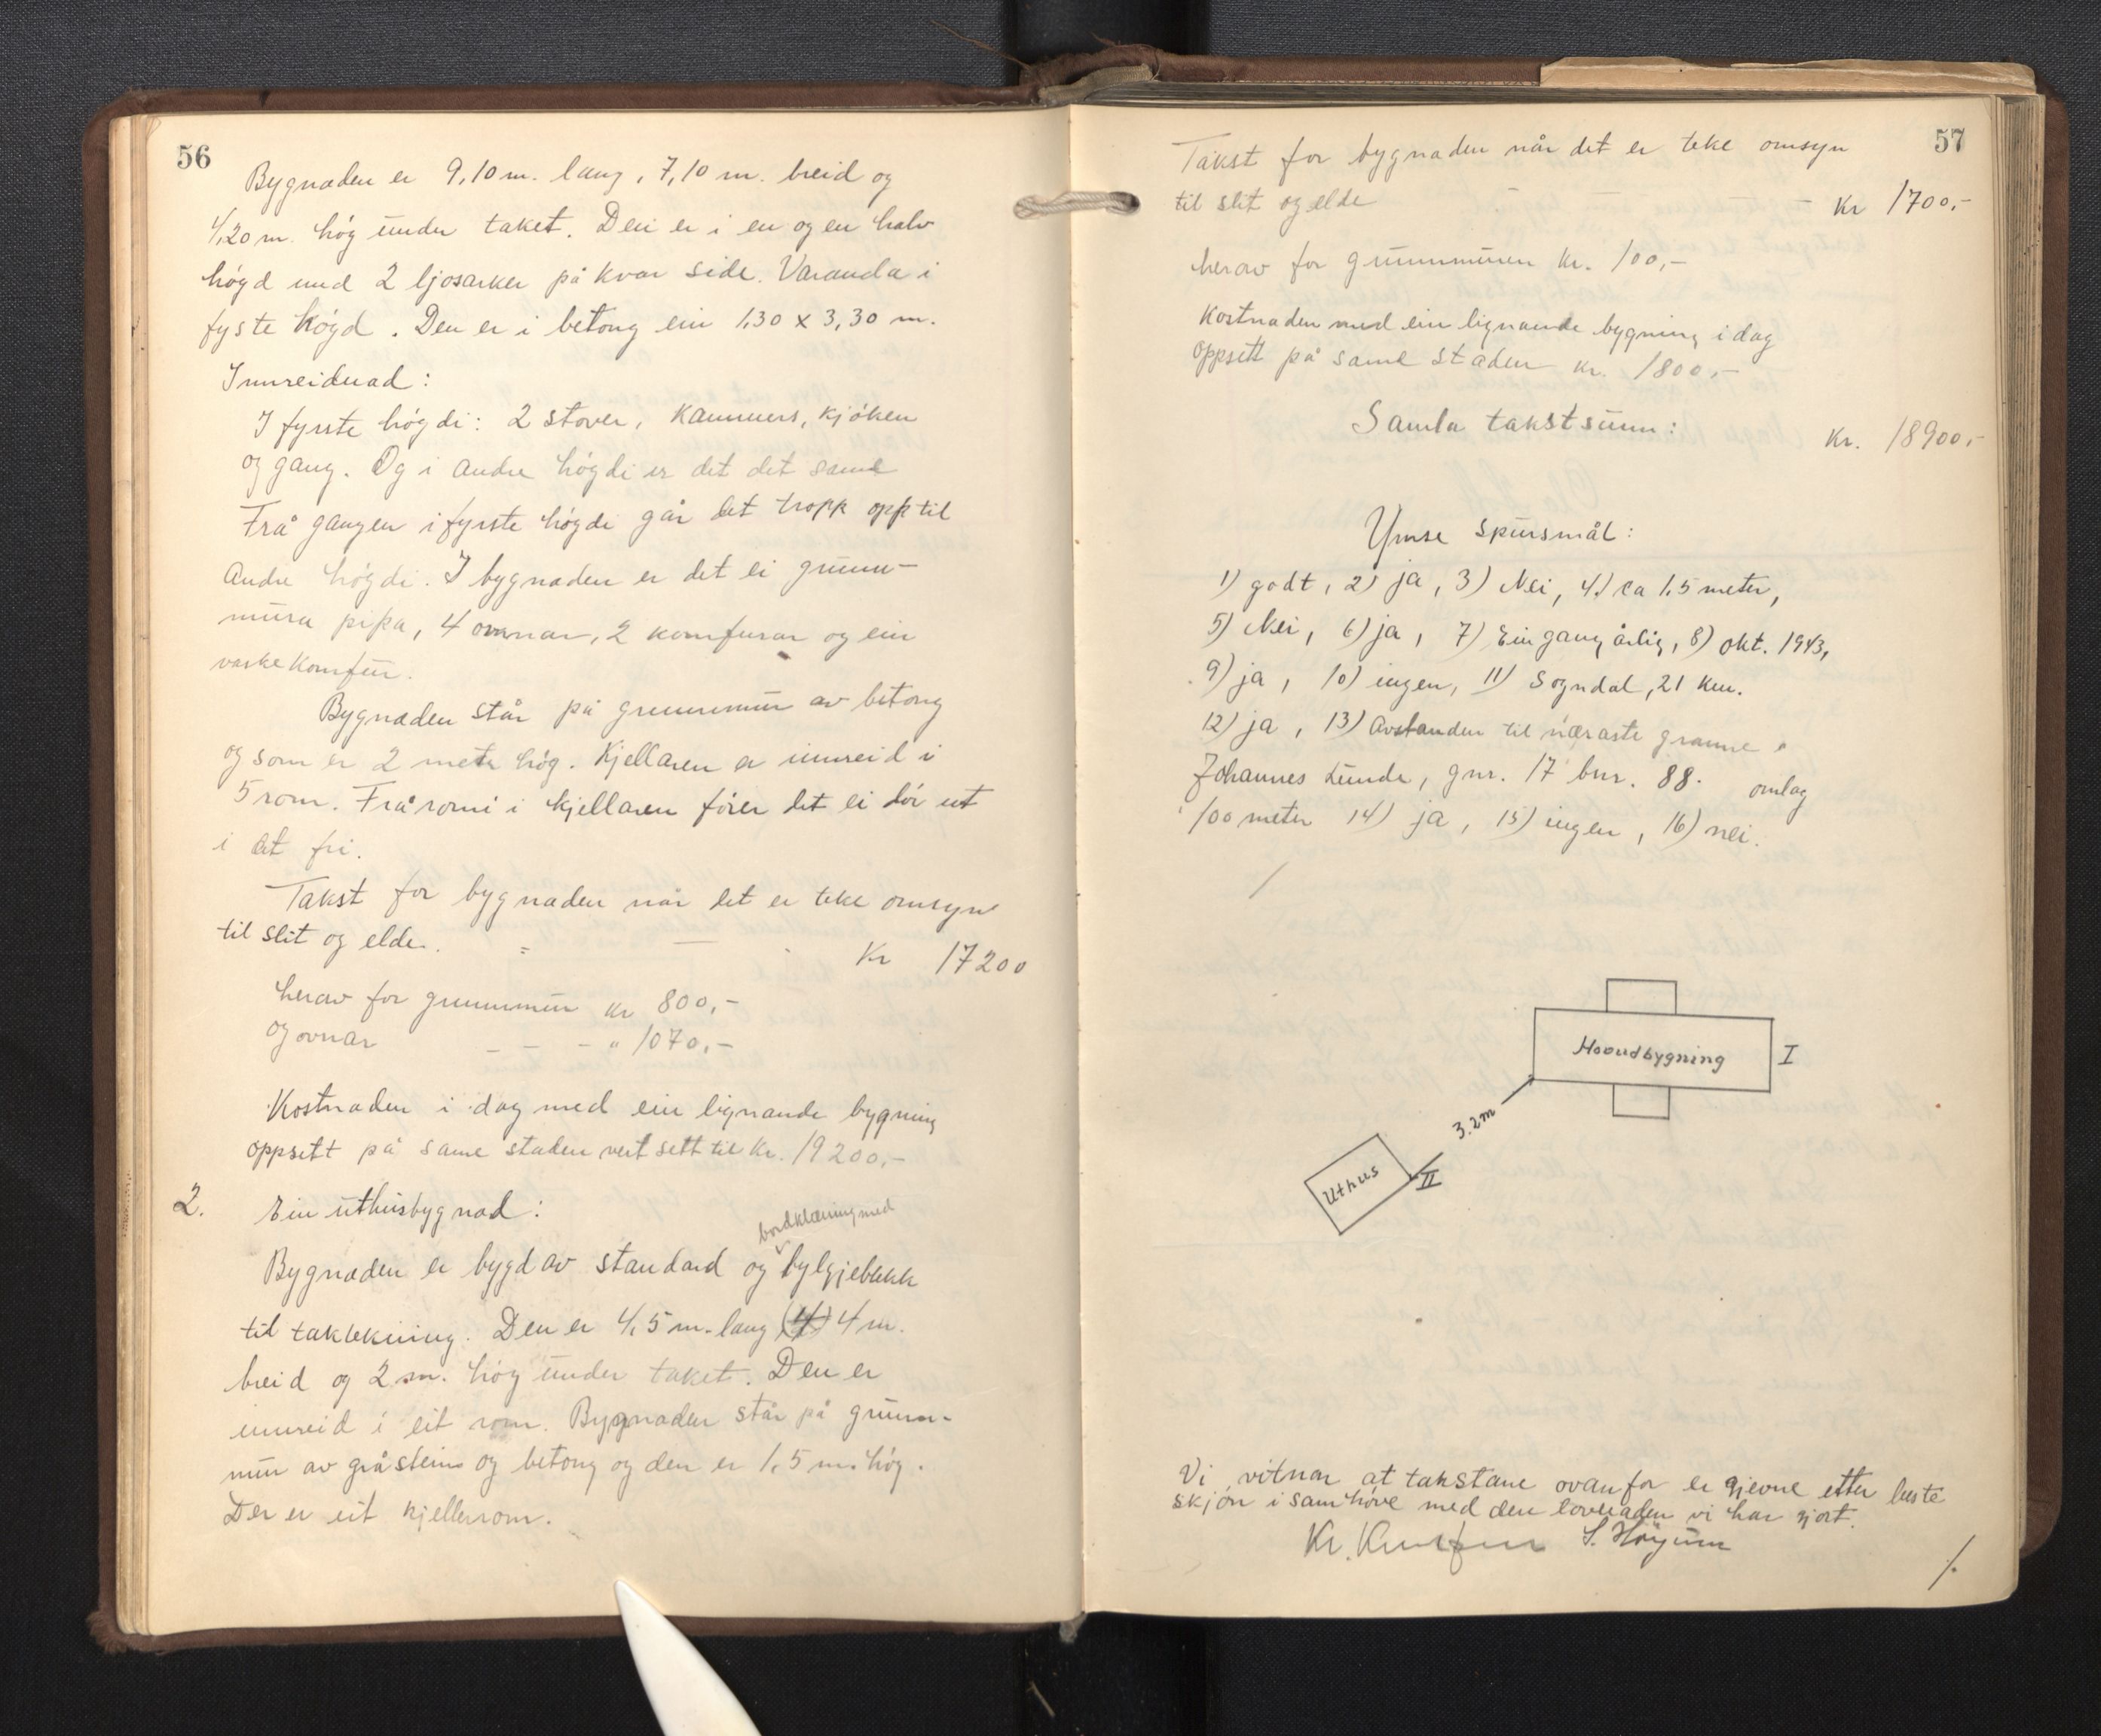 56
Bygnaden er 9,10 m. lang, 7,10 m. breid og
4,20 m. høg under taket. Den er i en og en halv
høgd med 2 ljosarker på kvar side. Varanda i
fyste høgd. Den er i betong ein 1,30 x 3,30 m.
Innreidnad:
I fyrste høgdi: 2 stover, kammers, kjøken
og gang. Og i andre høgdi er det det same
Frå gangen i fyrste høgdi går det tropp opp til
andre høgdi. I bygnaden er det ei grunn-
mura pipa, 4 omnar, 2 komfurar og ein
vaskekomfur.
Bygnaden står på grunnmur av betong
og som er 2 meter høg. Kjellaren er innreid i
5 rom. Frå romi i kjellaren fører det ei dør ut
i det fri.
Takst for bygnaden når det er teke omsyn
til slit og elde. Kr 17200
herav for grunnmur kr 800,-
og ovnar - - - " 1070,-
Kostnaden i dag med ein lignande bygning
oppsett på same staden vert sett til kr. 19200,-
2. Ein uthusbygnad:
bordklæning med
Bygnaden er bygd av standard og bylgjeblekk
til taktekning. Den er 4,5 m. lang (4) 4 m.
breid og 2 m. høg under taket. Den er
innreid i eit rom. Bygnaden står på grunn-
mur av gråstein og betong og den er 1,5 m. høg.
Der er eit kjellerrom.
57
Takst for bygnaden når det er teke omsyn
til slit og elde - - Kr 1700,-
herav for grunnmuren kr. 100,-
Kostnaden med ein lignande bygning i dag
oppsett på same staden kr. 1800,-
Samla takstsum: Kr. 18900,-
Ymse spursmål:
1) godt, 2) ja, 3) Nei, 4) ca 1,5 meter,
5) Nei, 6) ja, 7) Ein gang årlig, 8) okt. 1943,
9) ja, 10) ingen, 11) Sogndal, 21 km.
12) ja, 13) Avstanden til næraste granne
Johannes Lunde, gnr. 17 bnr. 88. omlag
100 meter 14) ja, 15) ingen, 16) nei.
Hovudbygning I
3.2m
Uthus II
Vi vitnar at takstane ovanfor er gjevne etter beste
skjøn i samhøve med den lovnaden vi har gjort.
Kr. Knutsen S. Høyum